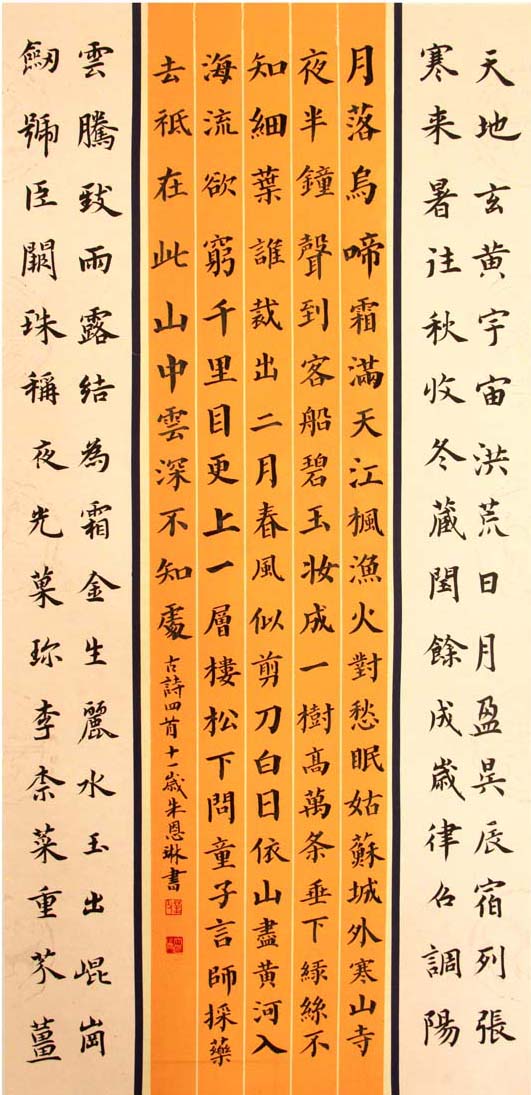 天地玄黄宇宙洪荒日月盈昃辰宿列張
寒来暑往秋收冬藏閏餘成歲律召調陽
月落烏啼霜滿天江楓漁火對愁眠姑蘇城外寒山寺
夜半鐘聲到客船碧玉妝成一樹高萬条垂下緑絲不
知細葉誰裁出二月春風似剪刀白日依山盡黄河入
海流欲窮千里目更上一層樓松下問童子言師採藥
去祗在此山中雲深不知處
古詩四首十一歲朱恩琳書
雲騰致雨露結為霜金生麗水玉出崐崗
劒號臣闕珠稱夜光菓珎李柰菜重芥薑